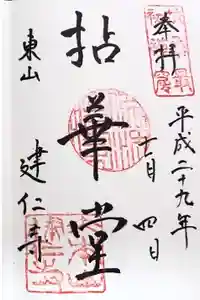 奉拝
平成二十九年
十一月 四日
拈華堂
東山
建仁寺